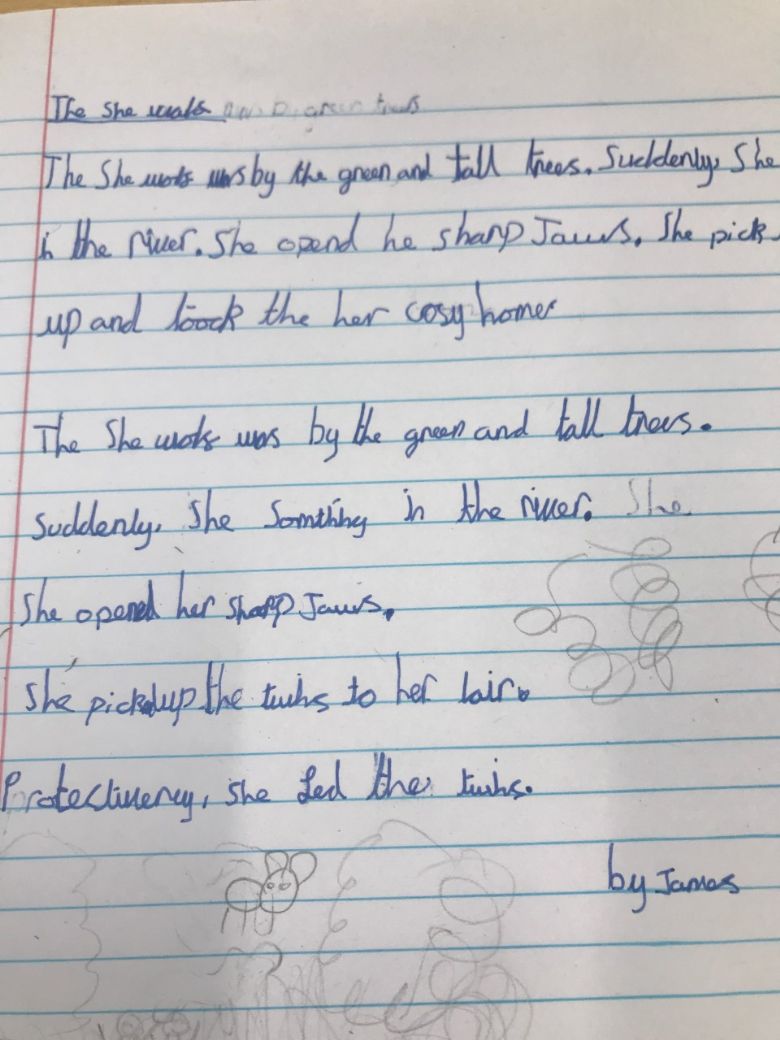 The She wolf green trees
The She wolfs was by the green and tall trees. Suddenly, She
in the river. She opend he sharp Jaws. She pick
up and toock the her cosy home
The She wolfs was by the green and tall trees.
Suddenly, She Somthing in the river. She
She opened her sharp Jaws.
She pickd up the twins to her lair.
Protectivency, she fed the twins.
by James